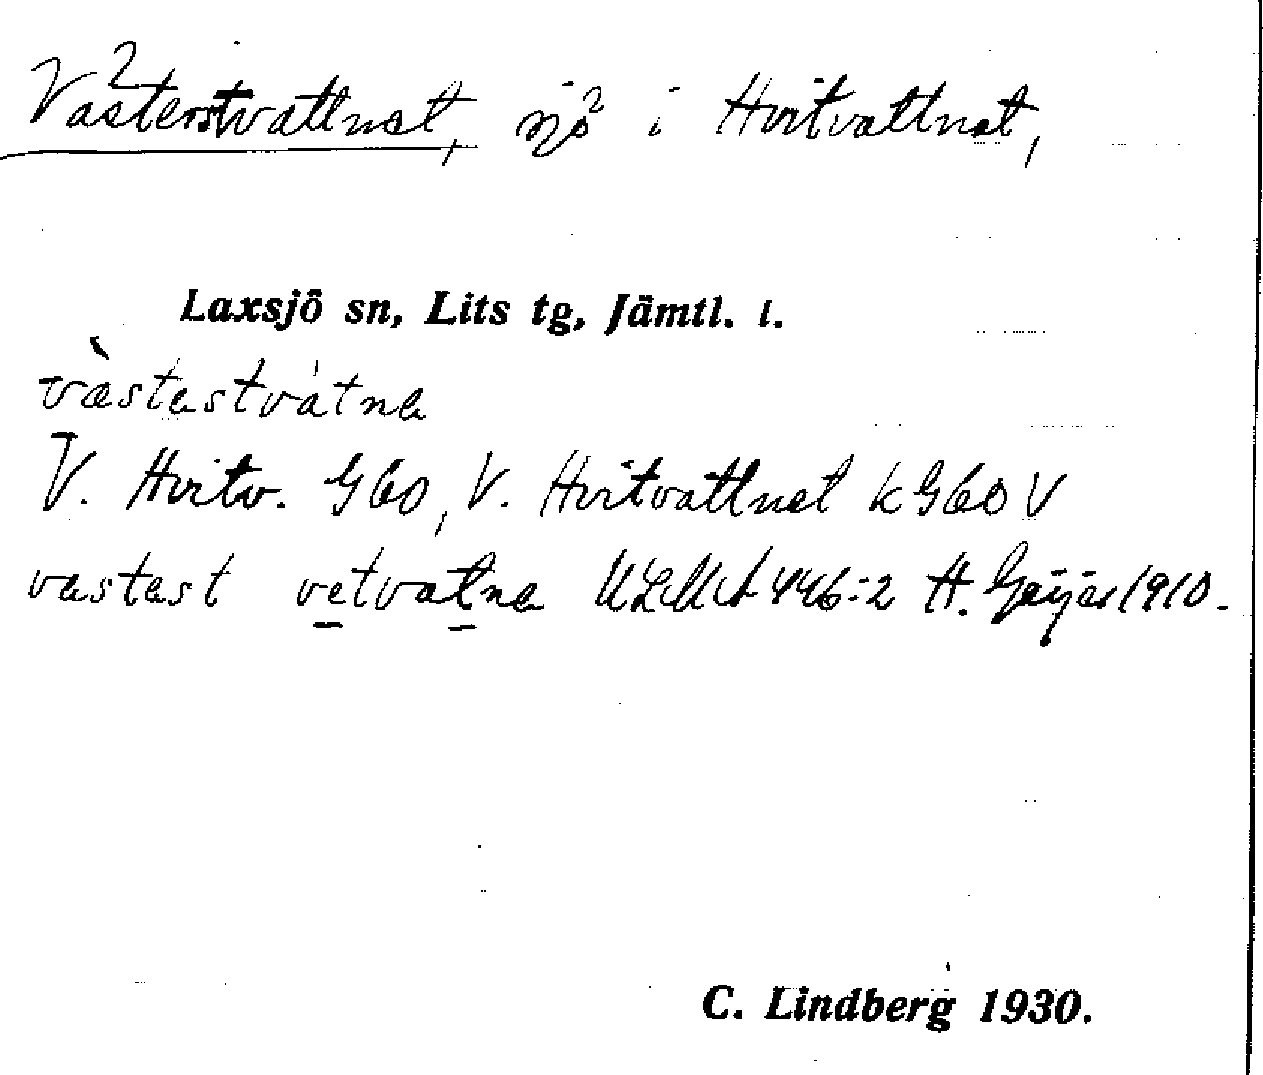 Västerstvattnet, sjö i Hvitvattnet,
Laxsjö sn, Lits tg, Jämtl. l.
västastvátna
V. Hvitv. G60, V. Hvitvattnet k G60 V
vastast vetvatna ULMA 446:2 H. Geijer 1910.
C. Lindberg 1930.